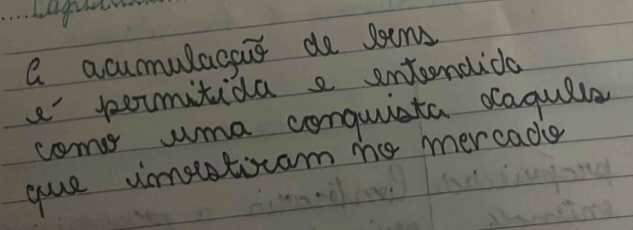 A acumulação de bens
é permitida e entendida
como uma conquista daqueles
que investiram no mercado